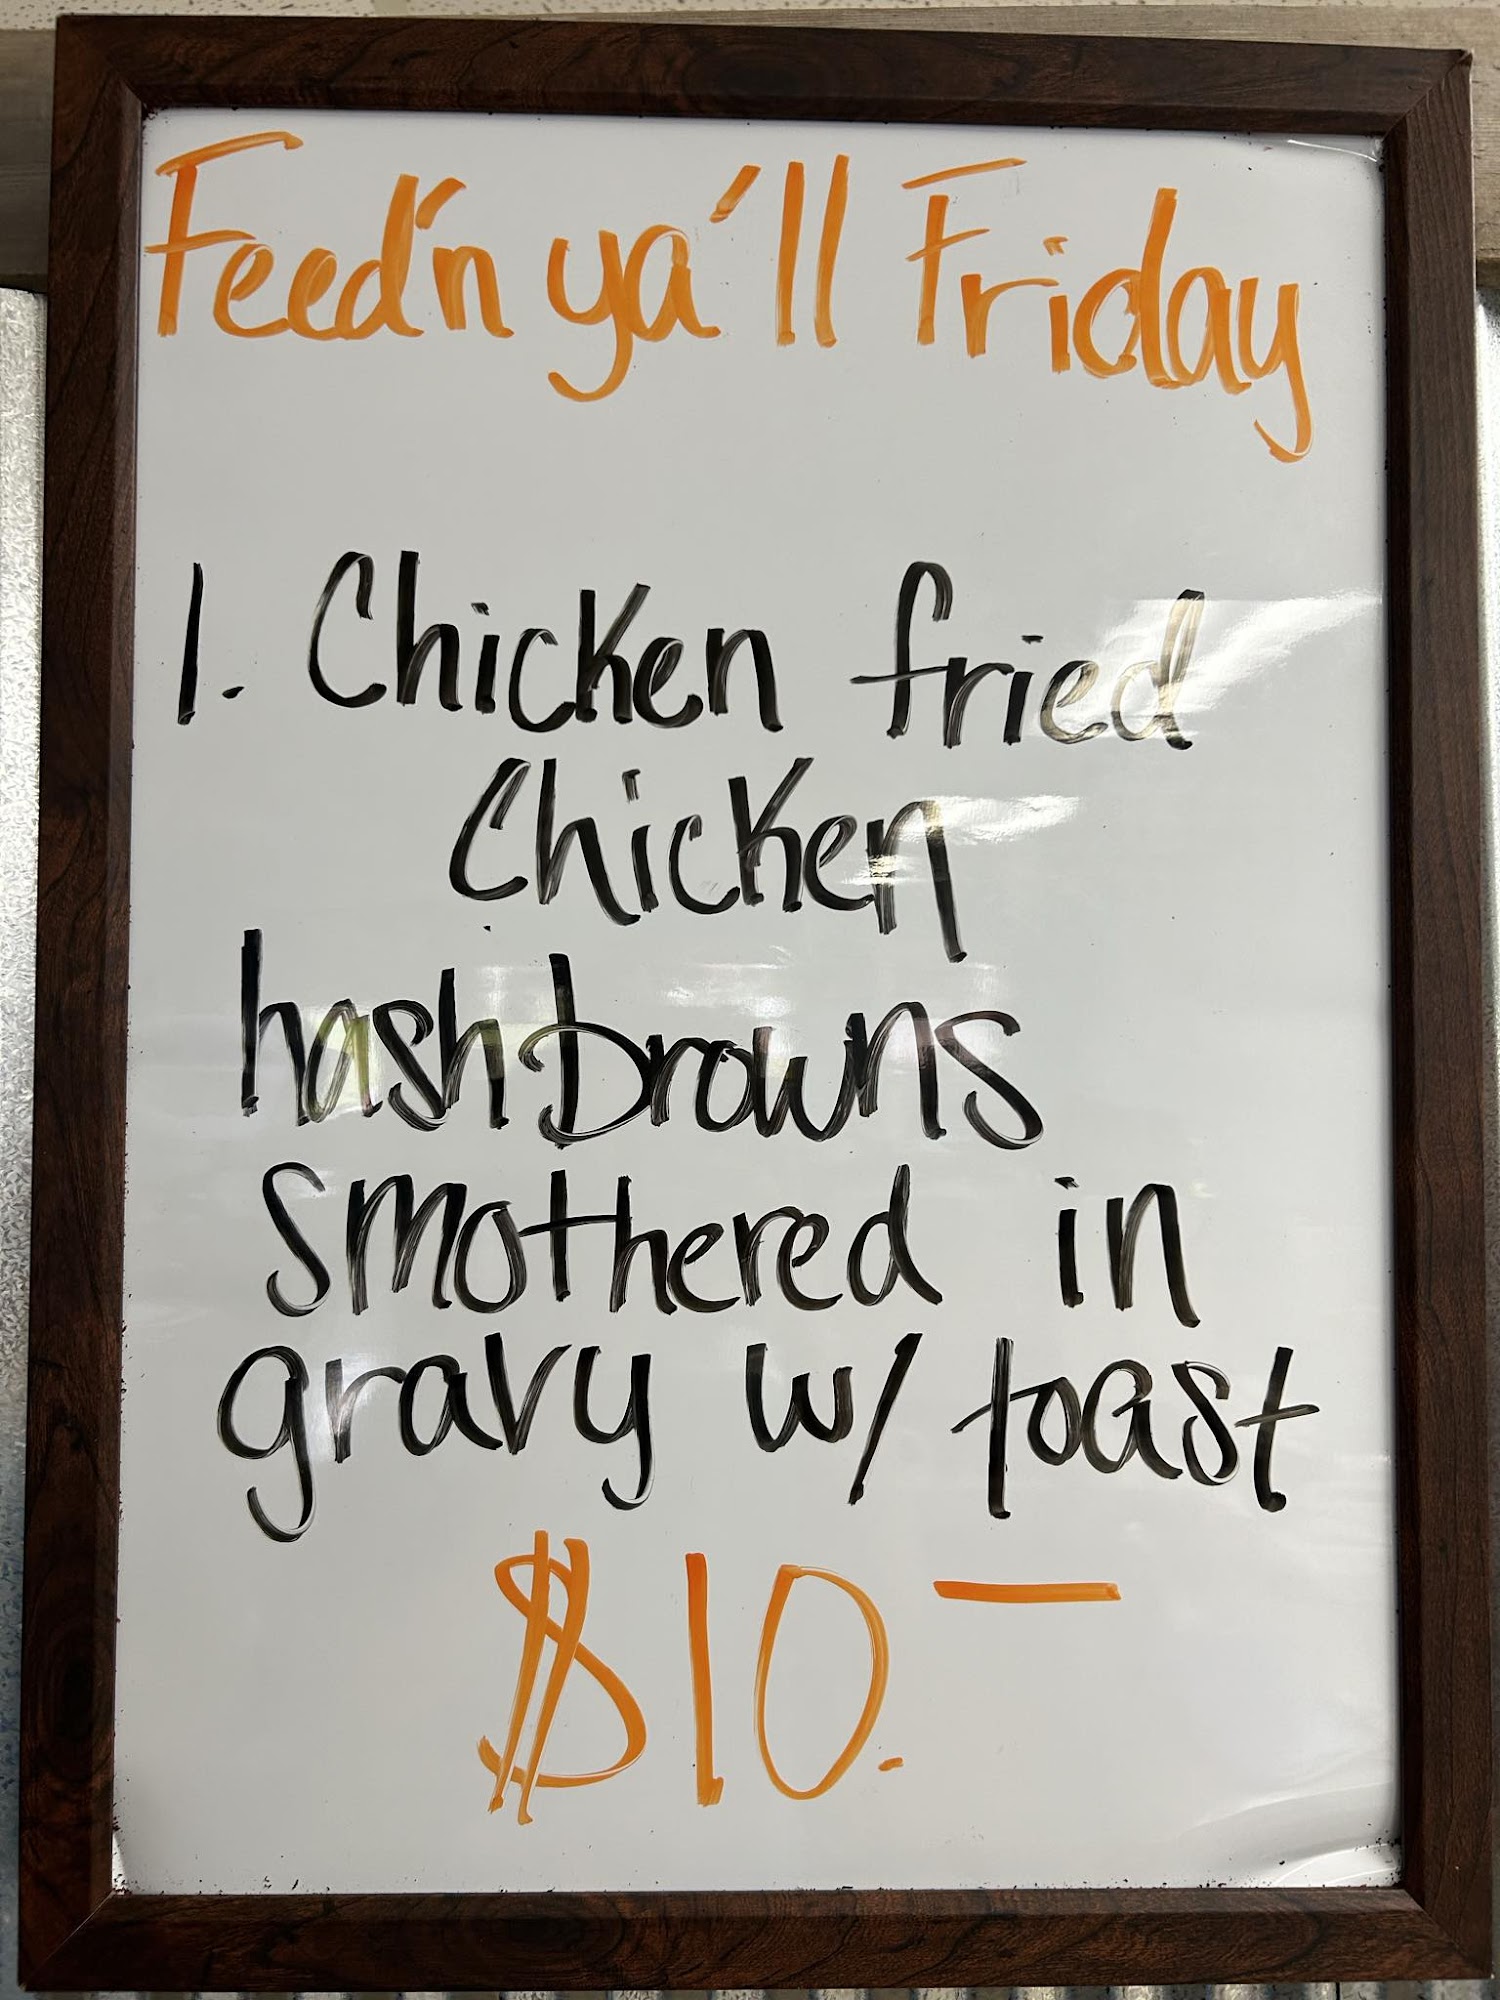 Feed'n ya'll Friday
1. Chicken fried
Chicken
hashbrowns
smothered in
gravy w/ toast
$10.—